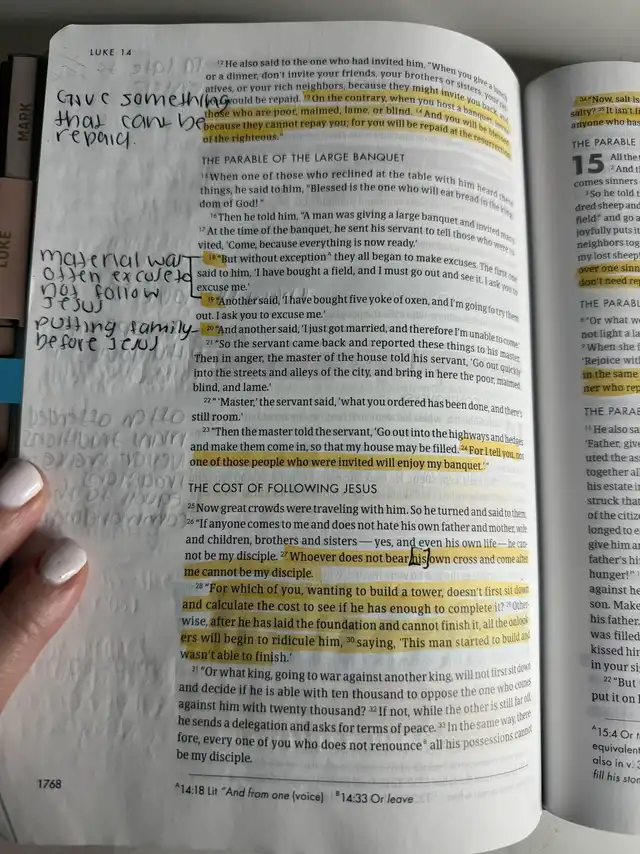 LUKE 14
MARK
LUKE
Give something
that can't be
repaid.
material war
often excuse to
not follow
Jesus
putting family
before Jesus
12 He also said to the one who had invited him, "When you give a lunch
or a dinner, don't invite your friends, your brothers or sisters, your rel-
atives, or your rich neighbors, because they might invite you back, and
would be repaid. 13 On the contrary, when you host a banquet,
those who are poor, maimed, lame, or blind. 14 And you will be blessed,
because they cannot repay you; for you will be repaid at the resurrection
of the righteous."
THE PARABLE OF THE LARGE BANQUET
15 When one of those who reclined at the table with him heard these
things, he said to him, "Blessed is the one who will eat bread in the king-
dom of God!"
16 Then he told him, "A man was giving a large banquet and invited many.
17 At the time of the banquet, he sent his servant to tell those who were in-
vited, 'Come, because everything is now ready.'
18 "But without exception A they all began to make excuses. The first one
said to him, 'I have bought a field, and I must go out and see it. I ask you to
excuse me.'
19 "Another said, 'I have bought five yoke of oxen, and I'm going to try them
out. I ask you to excuse me.'
20 "And another said, 'I just got married, and therefore I'm unable to come.'
21 "So the servant came back and reported these things to his master.
Then in anger, the master of the house told his servant, 'Go out quickly
into the streets and alleys of the city, and bring in here the poor, maimed,
blind, and lame.'
22 "'Master,' the servant said, 'what you ordered has been done, and there's
still room.'
23 "Then the master told the servant, 'Go out into the highways and hedges
and make them come in, so that my house may be filled. 24 For I tell you, not
one of those people who were invited will enjoy my banquet.'"
THE COST OF FOLLOWING JESUS
25 Now great crowds were traveling with him. So he turned and said to them,
26 "If anyone comes to me and does not hate his own father and mother, wife
and children, brothers and sisters — yes, and even his own life — he can-
not be my disciple. 27 Whoever does not bear [his] own cross and come after
me cannot be my disciple.
28 "For which of you, wanting to build a tower, doesn't first sit down
and calculate the cost to see if he has enough to complete it? 29 Other-
wise, after he has laid the foundation and cannot finish it, all the onlook-
ers will begin to ridicule him, 30 saying, 'This man started to build and
wasn't able to finish.'
31 "Or what king, going to war against another king, will not first sit down
and decide if he is able with ten thousand to oppose the one who comes
against him with twenty thousand? 32 If not, while the other is still far off,
he sends a delegation and asks for terms of peace. 33 In the same way, there-
fore, every one of you who does not renounce B all his possessions cannot
be my disciple.
1768
A 14:18 Lit "And from one (voice) B 14:33 Or leave
34 "Now, salt is
salty? 35 It isn't fi
anyone who has
THE PARABLE
15 All the
2 And t
comes sinners
3 So he told t
dred sheep and
field and go a
joyfully puts it
neighbors tog
my lost sheep!
over one sinn
don't need rep
THE PARAB
8 "Or what wo
not light a la
9 When she f
'Rejoice with
in the same
ner who rep
THE PARAB
11 He also sa
'Father, give
uted the ass
together all
his estate i
struck that
of the citize
longed to e
give him an
father's hi
hunger!
against he
son. Make
his father.
was filled
kissed him
in your sig
22 "But
put it on
A 15:4 Or t
equivalent
also in v.
fill his ston